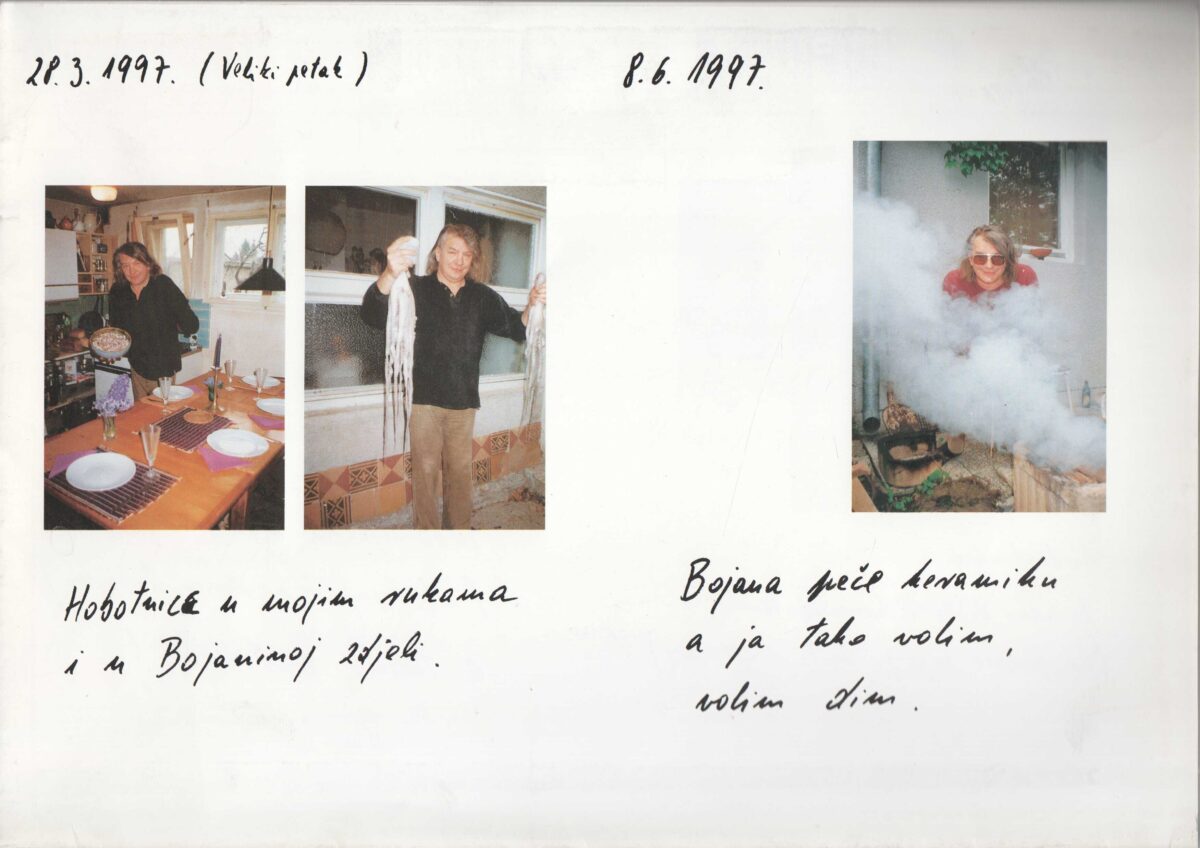 28. 3. 1997. (Veliki petak)
8. 6. 1997.
Hobotnice u mojim rukama
i u Bojaninoj zdjeli.
Bojana peče keramiku
a ja tako volim,
volim dim.